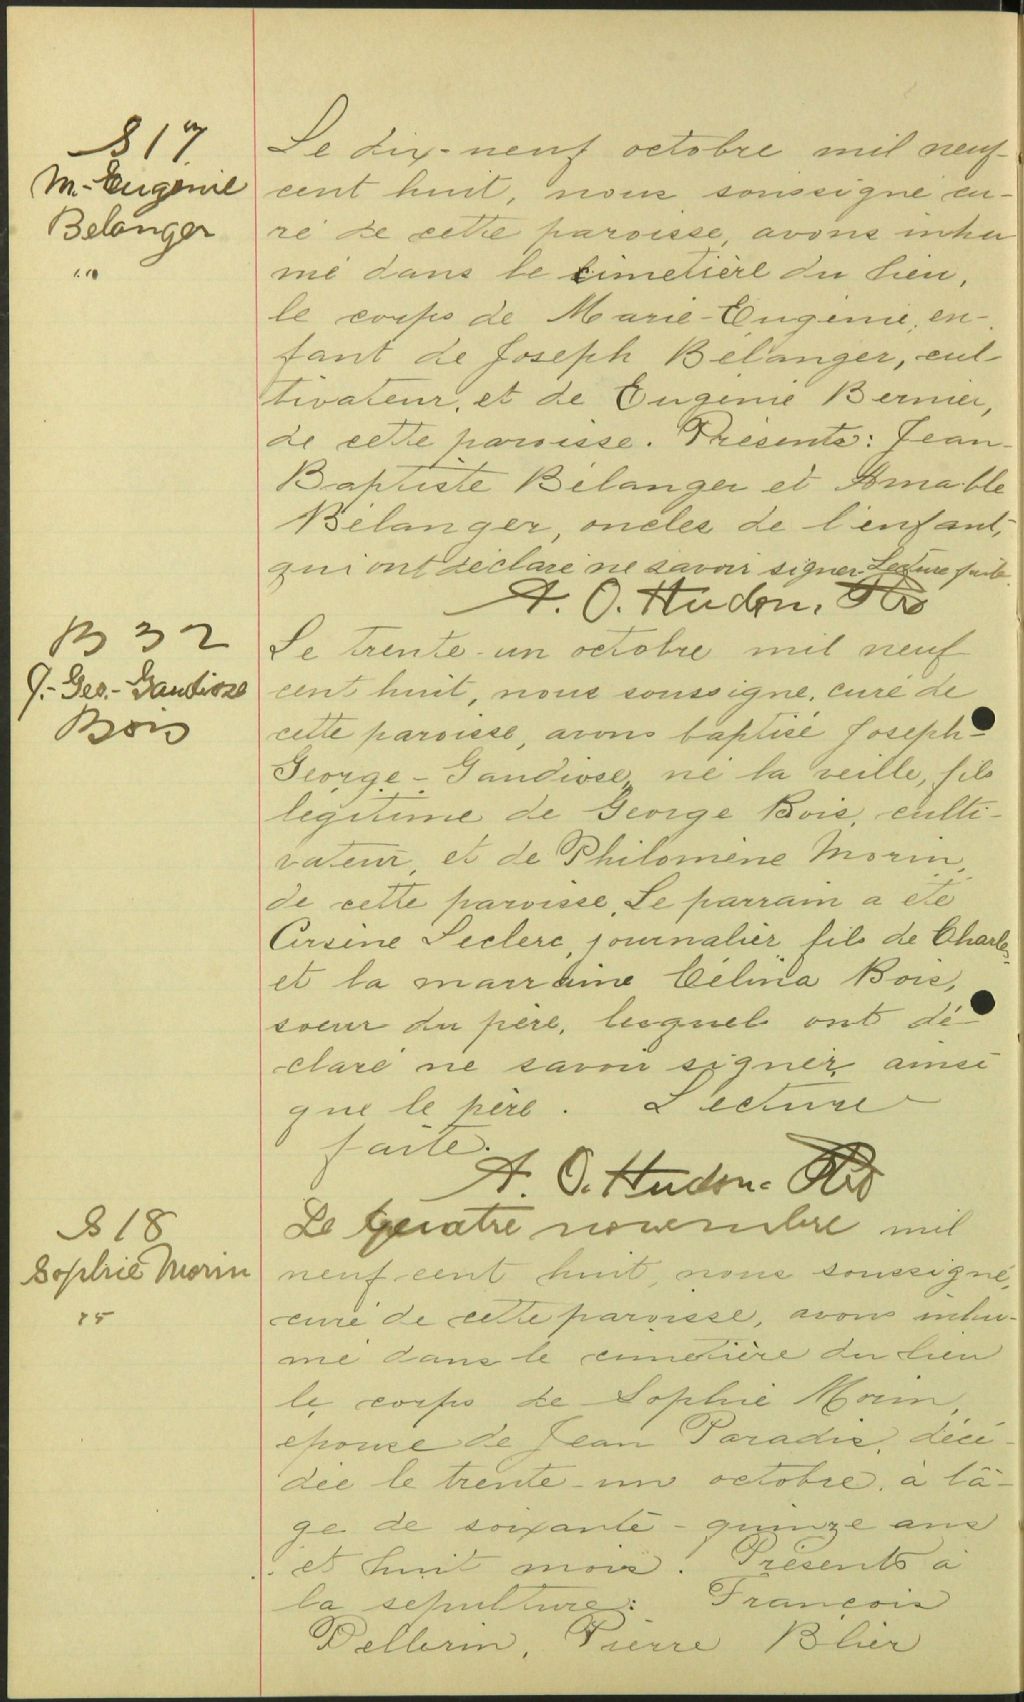 S 17
M.-Eugénie
Belanger
Le dix-neuf octobre mil neuf-
cent huit, nous soussigné cu-
ré de cette paroisse, avons inhu
mé dans le cimetière du lieu,
le corps de Marie-Eugénie, en-
fant de Joseph Bélanger, cul
tivateur, et de Eugénie Bernier,
de cette paroisse. Présents: Jean-
Baptiste Bélanger et Amable
Bélanger, oncles de l'enfant,
qui ont déclaré ne savoir signer. Lecture faite.
A. O. Hudon, Ptre
B 32
J.-Geo.-Gaudiose
Bois
Le trente-un octobre mil neuf
cent huit, nous soussigné, curé de
cette paroisse, avons baptisé Joseph-
George-Gaudiose, né la veille, fils
légitime de George Bois, culti-
vateur, et de Philomène Morin,
de cette paroisse. Le parrain a été
Arsène Leclerc, journalier, fils de Charles,
et la marraine Célina Bois,
soeur du père, lesquels ont dé-
claré ne savoir signer, ainsi
que le père. Lecture
faite.
A. O. Hudon, Ptre
S 18
Sophie Morin
75
Le quatre novembre mil
neuf cent huit, nous soussigné,
curé de cette paroisse, avons inhu-
mé dans le cimetière du lieu
le corps de Sophie Morin,
épouse de Jean Paradis, décé-
dée le trente-un octobre, à l'â-
ge de soixante-quinze ans
et huit mois. Présents à
la sépulture: François
Pellerin, Pierre Blier